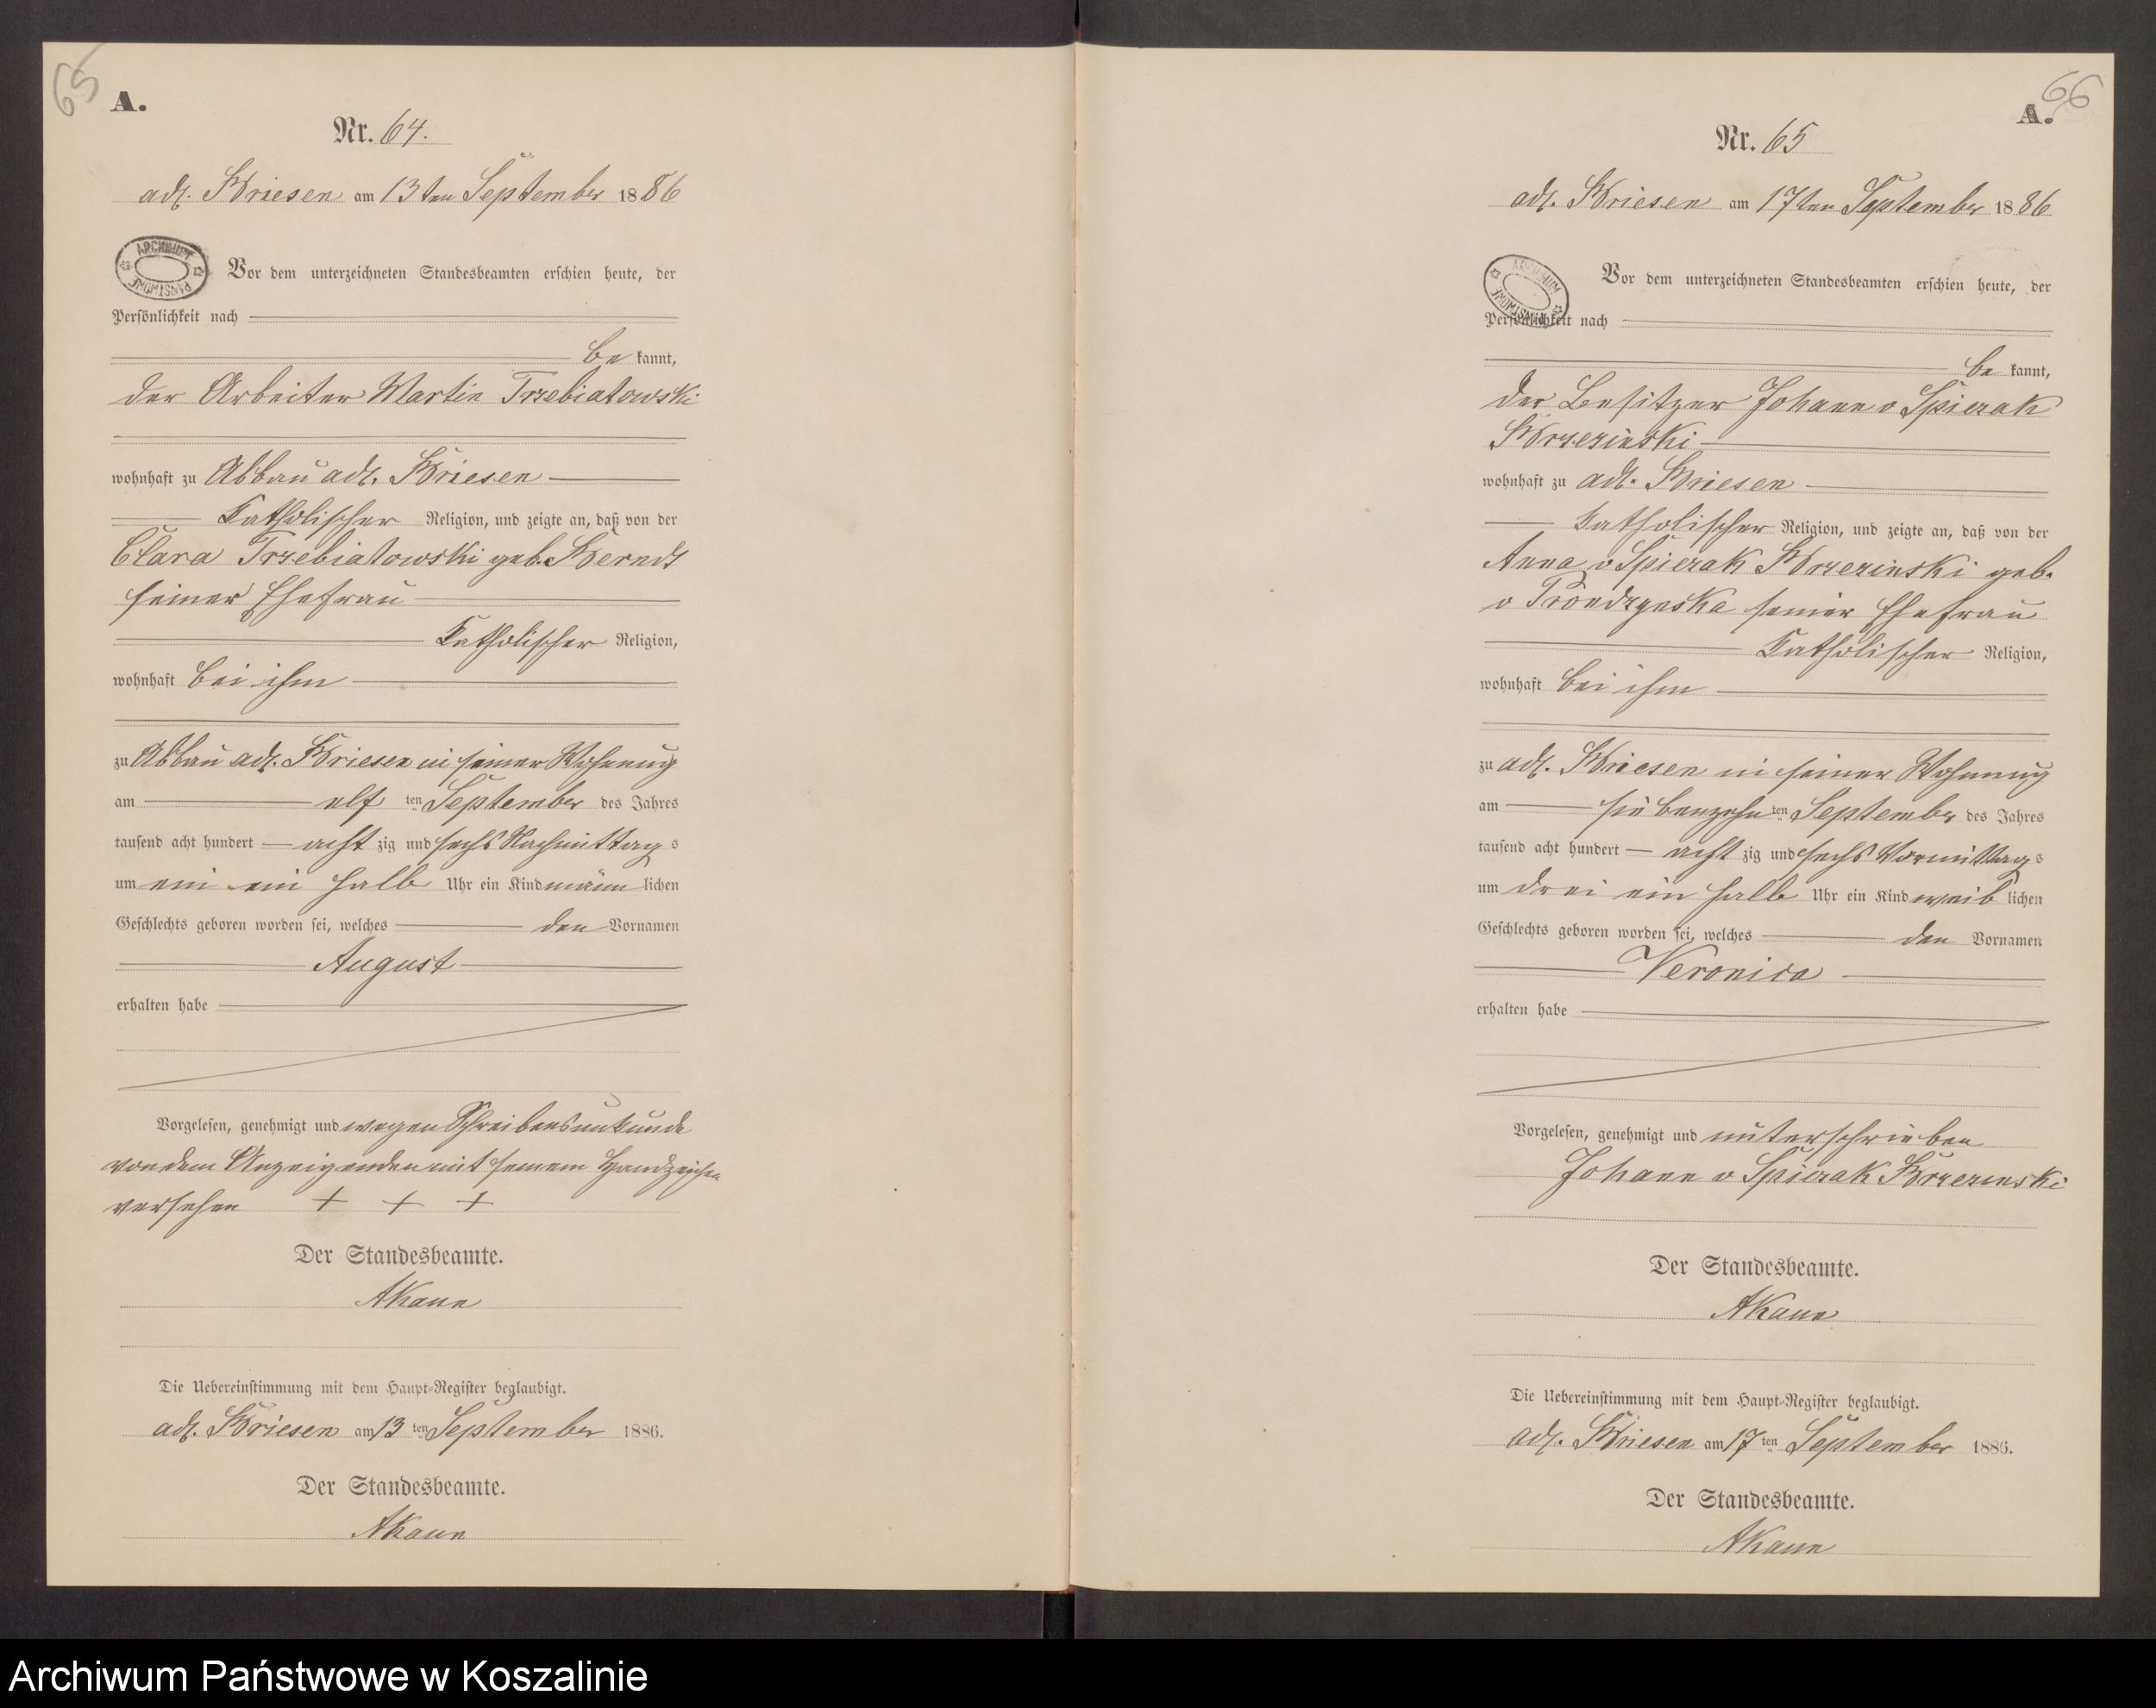 65
A.
Nr. 64.
adl. Briesen am 13ten September 1886
ARCHIWUM PAŃSTWOWE
Vor dem unterzeichneten Standesbeamten erschien heute, der
Persönlichkeit nach
bekannt,
der Arbeiter Martin Trzebiatowski
wohnhaft zu Abbau adl. Briesen
katholischer Religion, und zeigte an, daß von der
Clara Trzebiatowski geb. Berndt
seiner Ehefrau
katholischer Religion,
wohnhaft bei ihm
zu Abbau adl. Briesen in seiner Wohnung
am elf ten September des Jahres
tausend acht hundert achtzig und sechs Nachmittags
um ein ein halb Uhr ein Kind männlichen
Geschlechts geboren worden sei, welches den Vornamen
August
erhalten habe
Vorgelesen, genehmigt und wegen Schreibensunkunde
von dem Anzeigenden mit seinem Handzeichen
versehen + + +
Der Standesbeamte.
AKaun
Die Uebereinstimmung mit dem Haupt-Register beglaubigt.
adl. Briesen am 13 ten September 1886.
Der Standesbeamte.
AKaun
66
A.
Nr. 65
adl. Briesen am 17ten September 1886
ARCHIWUM PAŃSTWOWE
Vor dem unterzeichneten Standesbeamten erschien heute, der
Persönlichkeit nach
bekannt,
der Besitzer Johann v Spiczak
Brzezinski
wohnhaft zu adl. Briesen
katholischer Religion, und zeigte an, daß von der
Anna v Spiczak Brzezinski geb.
v seiner Ehefrau
katholischer Religion,
wohnhaft bei ihm
zu adl. Briesen in seiner Wohnung
am siebenzehn ten September des Jahres
tausend acht hundert achtzig und sechs Vormittags
um drei ein halb Uhr ein Kind weiblichen
Geschlechts geboren worden sei, welches den Vornamen
Veronica
erhalten habe
Vorgelesen, genehmigt und unterschrieben
Johann v Spiczak Brzezinski
Der Standesbeamte.
AKaun
Die Uebereinstimmung mit dem Haupt-Register beglaubigt.
adl. Briesen am 17 ten September 1886.
Der Standesbeamte.
AKaun
Archiwum Państwowe w Koszalinie